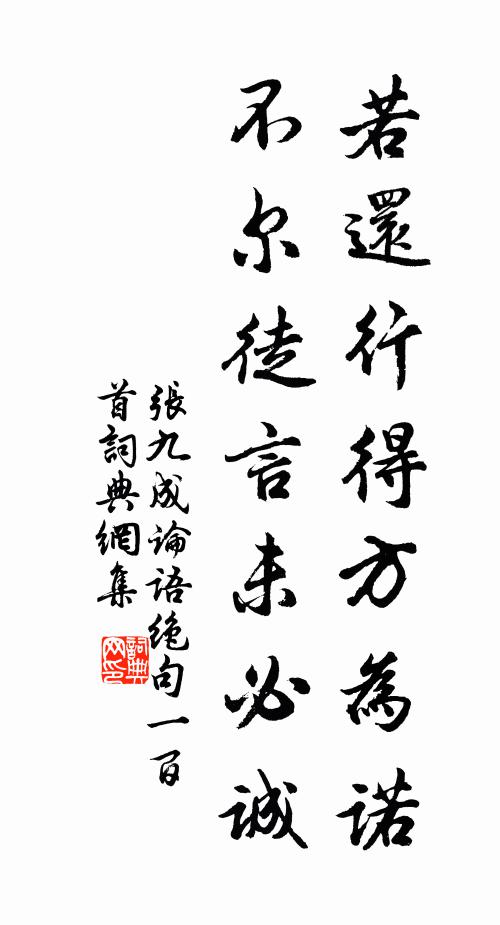 若還行得方為諾
不尔徒言未必誠
張九成論語絶句一百
首詞典網集
詞典
网印